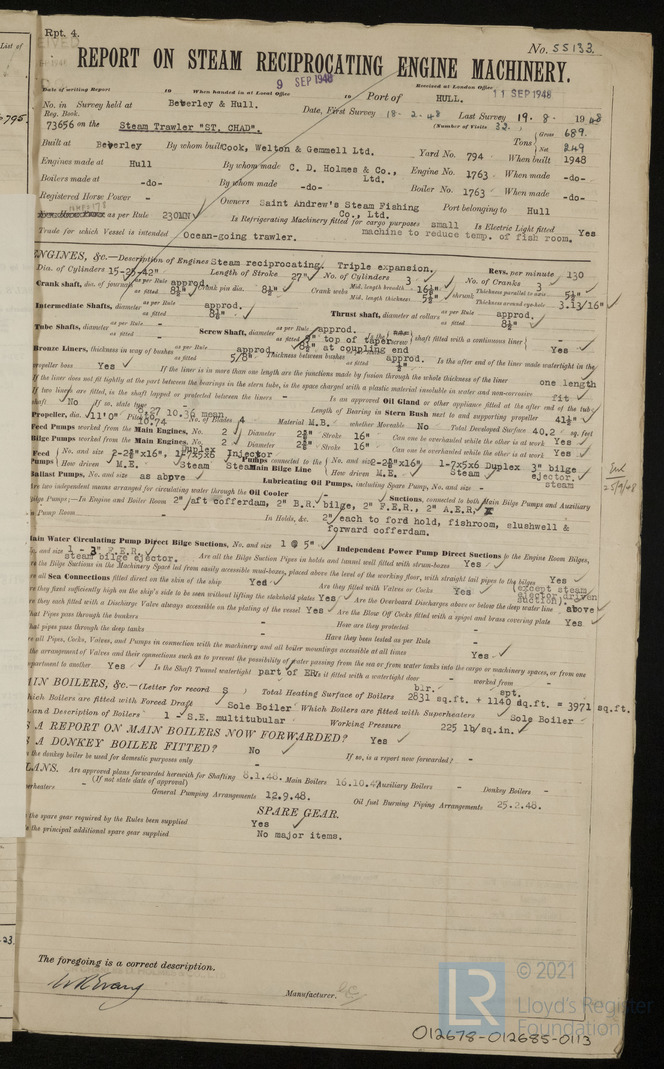 Rpt. 4.
No. 55133.
REPORT ON STEAM RECIPROCATING ENGINE MACHINERY.
9 SEP 1948
11 SEP 1948
Date of writing Report 19 When handed in at Local Office 19 Port of HULL. Received at London Office
No. in Survey held at Beverley & Hull. Date, First Survey 18-2-48 Last Survey 19-8-1948
Reg. Book. (Number of Visits 32.)
73656 on the Steam Trawler "ST. CHAD". Tons Gross 689. Net 249
Built at Beverley By whom built Cook, Welton & Gemmell Ltd. Yard No. 794 When built 1948
Engines made at Hull By whom made C. D. Holmes & Co., Ltd. Engine No. 1763 When made -do-
Boilers made at -do- By whom made -do- Boiler No. 1763 When made -do-
Registered Horse Power - Owners Saint Andrew's Steam Fishing Co., Ltd. Port belonging to Hull
as per Rule 230MN Is Refrigerating Machinery fitted for cargo purposes small machine to reduce temp. of fish room. Is Electric Light fitted Yes
Trade for which Vessel is intended Ocean-going trawler.
ENGINES, &c.—Description of Engines Steam reciprocating. Triple expansion. Revs. per minute 130
Dia. of Cylinders 15-25-42" Length of Stroke 27" No. of Cylinders 3 No. of Cranks 3
Crank shaft, dia. of journals as per Rule approd. as fitted 8½" Crank pin dia. 8½" Crank webs Mid. length breadth 16½" Mid. length thickness 5½" shrunk Thickness parallel to axis 5½" Thickness around eye-hole 3.13/16"
Intermediate Shafts, diameter as per Rule approd. as fitted 8½" Thrust shaft, diameter at collars as per Rule approd. as fitted 8½"
Tube Shafts, diameter as per Rule - as fitted - Screw Shaft, diameter as per Rule approd. as fitted 9" top of taper 8½" at coupling end Is the screw shaft fitted with a continuous liner Yes
Bronze Liners, thickness in way of bushes as per Rule approd. as fitted 5/8" Thickness between bushes as per Rule approd. as fitted ½" Is the after end of the liner made watertight in the
propeller boss Yes If the liner is in more than one length are the junctions made by fusion through the whole thickness of the liner one length
If the liner does not fit tightly at the part between the bearings in the stern tube, is the space charged with a plastic material insoluble in water and non-corrosive fit
If two liners are fitted, is the shaft lapped or protected between the liners - Is an approved Oil Gland or other appliance fitted at the after end of the tube
shaft No If so, state type - Length of Bearing in Stern Bush next to and supporting propeller 41½"
Propeller, dia. 11'0" 10.36 mean 10.74 No. of Blades 4 Material M.B. whether Moveable No Total Developed Surface 40.2 sq. feet
Feed Pumps worked from the Main Engines, No. 2 Diameter 2½" Stroke 16" Can one be overhauled while the other is at work Yes
Bilge Pumps worked from the Main Engines, No. 2 Diameter 2½" Stroke 16" Can one be overhauled while the other is at work Yes
Feed Pumps No. and size 2-2½"x16", 1-7x5x6 Duplex Injector How driven M.E. Steam Steam Pumps connected to the Main Bilge Line No. and size 2-2½"x16" 1-7x5x6 Duplex 3" bilge ejector. How driven M.E. Steam steam
Ballast Pumps, No. and size as above Lubricating Oil Pumps, including Spare Pump, No. and size -
Are two independent means arranged for circulating water through the Oil Cooler - Suctions, connected to both Main Bilge Pumps and Auxiliary
Bilge Pumps;—In Engine and Boiler Room 2" aft cofferdam, 2" B.R. bilge, 2" F.E.R., 2" A.E.R.
In Pump Room - In Holds, &c. 2" each to ford hold, fishroom, slushwell & forward cofferdam.
Main Water Circulating Pump Direct Bilge Suctions, No. and size 1 @ 5" Independent Power Pump Direct Suctions to the Engine Room Bilges,
No. and size 1 - 3" F.E.R. steam bilge ejector. Are all the Bilge Suction Pipes in holds and tunnel well fitted with strum-boxes Yes
Are the Bilge Suctions in the Machinery Space led from easily accessible mud-boxes, placed above the level of the working floor, with straight tail pipes to the bilges Yes (except steam ejector driven suction).
Are all Sea Connections fitted direct on the skin of the ship Yes Are they fitted with Valves or Cocks Yes
Are they fixed sufficiently high on the ship's side to be seen without lifting the stokehold plates Yes Are the Overboard Discharges above or below the deep water line above
Are they each fitted with a Discharge Valve always accessible on the plating of the vessel Yes Are the Blow Off Cocks fitted with a spigot and brass covering plate Yes
What Pipes pass through the bunkers - How are they protected -
What pipes pass through the deep tanks - Have they been tested as per Rule -
Are all Pipes, Cocks, Valves, and Pumps in connection with the machinery and all boiler mountings accessible at all times Yes
Is the arrangement of Valves and their connections such as to prevent the possibility of water passing from the sea or from water tanks into the cargo or machinery spaces, or from one
compartment to another Yes Is the Shaft Tunnel watertight part of ER. Is it fitted with a watertight door - worked from -
MAIN BOILERS, &c.—(Letter for record S) Total Heating Surface of Boilers blr. 2831 sq.ft. + spt. 1140 sq.ft. = 3971 sq.ft.
Which Boilers are fitted with Forced Draft Sole Boiler Which Boilers are fitted with Superheaters Sole Boiler
No. and Description of Boilers 1 - S.E. multitubular Working Pressure 225 lb/sq.in.
IS A REPORT ON MAIN BOILERS NOW FORWARDED? Yes
IS A DONKEY BOILER FITTED? No If so, is a report now forwarded? -
Is the donkey boiler to be used for domestic purposes only -
PLANS. Are approved plans forwarded herewith for Shafting 8.1.48. Main Boilers 16.10.47 Auxiliary Boilers - Donkey Boilers -
(If not state date of approval)
Superheaters - General Pumping Arrangements 12.9.48. Oil fuel Burning Piping Arrangements 25.2.48.
SPARE GEAR.
Has the spare gear required by the Rules been supplied Yes
State the principal additional spare gear supplied No major items.
The foregoing is a correct description.
Manufacturer.
© 2021
LR Lloyd's Register
Foundation
012678-012685-0113